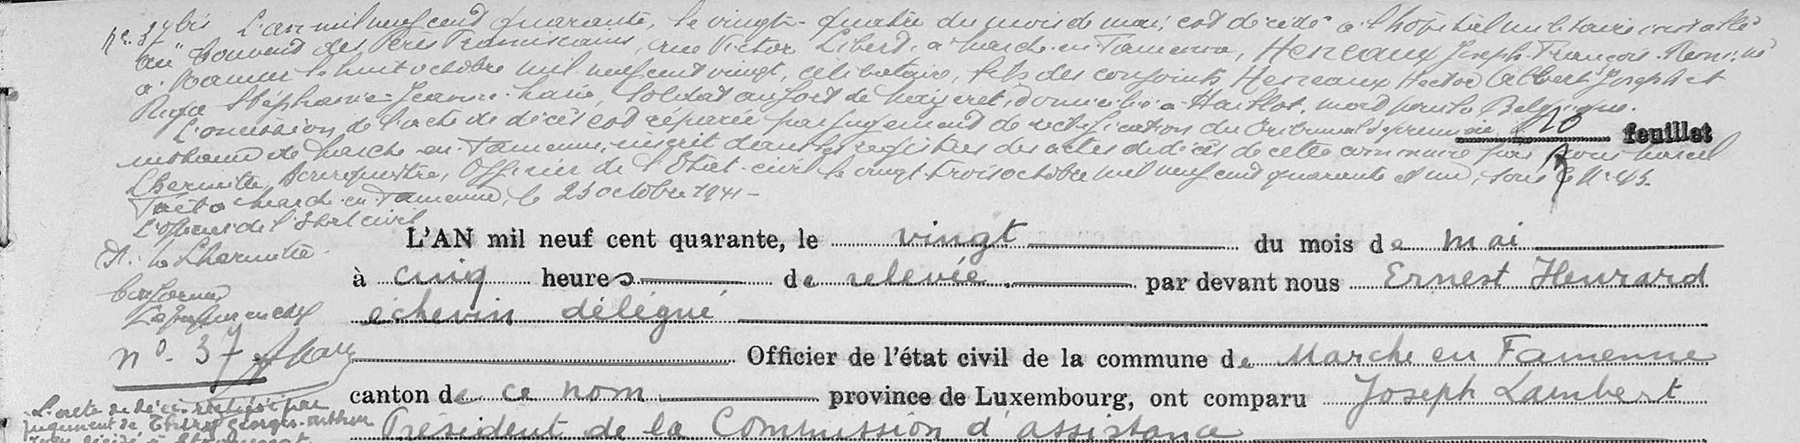 N° 37bis L'an mil neuf cent quarante, le vingt-quatre du mois de mai, est décédé à l'hôpital militaire installé
au Couvent des Pères Franciscains, rue Victor Libert, à Marche-en-Famenne, Henreaux Joseph-François-Remi, né
à Namur le huit octobre mil neuf cent vingt, célibataire, fils des conjoints Henreaux Hector Albert Joseph et
Stéphanie-Jeanne-Marie, Soldat au fort de Maizeret, domicilié à Haillot, mort pour la Belgique.
L'omission de l'acte de décès est réparée par jugement de rectification du Tribunal de première
20 feuillet
de Marche-en-Famenne, inscrit dans les registres des actes de décès de cette commune par Nous Marcel
Lhermitte, bourgmestre, Officier de l'Etat-civil le vingt-trois octobre mil neuf cent quarante et un, sous le N° 45.
Fait à Marche-en-Famenne, le 23 octobre 1941 -
L'officier de l'Etat civil
Lhermitte.
L'AN mil neuf cent quarante, le vingt du mois de mai
à cinq heures de relevée par devant nous Ernest Henrard
échevin délégué
n° 37
Officier de l'état civil de la commune de Marche en Famenne
canton de ce nom province de Luxembourg, ont comparu Joseph Lambert
L'acte de décès rectifié par
jugement de Georges-Arthur
Président de la Commission d'assistance